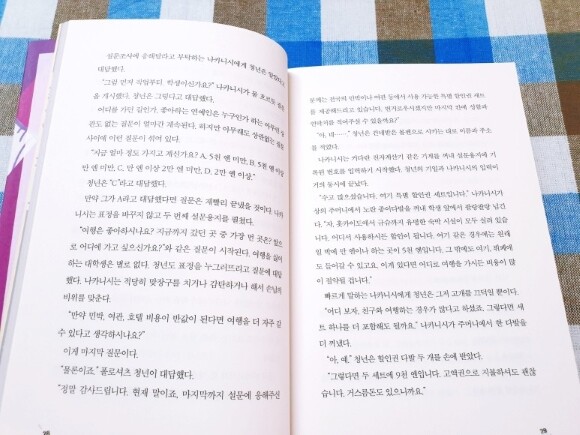 설문조사에 응해달라고 부탁하는 나카니시에게 청년은
대답했다.
"그럼 먼저 직업부터. 학생이신가요?" 나카니시가
을 제시했다. 청년은 그렇다고 대답했다.
어디를 가던 길인가, 좋아하는 연예인은 누구인가 하는
런 질문이 얼마간 계속된다. 하지만 아무래도 상관없는
사이에 이런 질문이 섞여 있다.
"지금 얼마 정도 가지고 계신가요? A, 5천 엔 미만, B, 5천 엔 이상
만 엔 미만, C, 만 엔 이상 2만 엔 미만, D, 2만 엔 이상."
청년은 "C"라고 대답했다.
만약 그가 A라고 대답했다면 질문은 재빨리 끝냈을 것이다. 나카
니시는 표정을 바꾸지 않고 두 번째 설문용지를 펼쳤다.
"여행은 좋아하시나요? 지금까지 갔던 곳 중 가장 먼 곳은? 앞으
로 어디에 가고 싶으신가요?"와 같은 질문이 시작된다. 여행을 싫어
하는 대학생은 별로 없다. 청년도 표정을 누그러뜨리고 질문에 대답
했다. 나카니시는 적당히 맞장구를 치거나 감탄하거나 해서 손님의
비위를 맞춘다.
"만약 민박, 여관, 호텔 비용이 반값이 된다면 여행을 더 자주 갈
수 있다고 생각하시나요?"
이게 마지막 질문이다.
"물론이죠." 폴로셔츠 청년이 대답했다.
"정말 감사드립니다. 현재 말이죠, 마지막까지 설문에 응해주신
28
분께는 전국의 민박이나 여관 등에서 사용 가능한 특별 할인권 세트
를 제공해드리고 있습니다. 번거로우시겠지만 마지막 칸에 성함과
연락처를 적어주실 수 있을까요?"
"아, 네……." 청년은 건네받은 볼펜으로 시키는 대로 이름과 주소
를 적었다.
나카니시는 커다란 전자계산기 같은 기계를 꺼내 설문용지에 기
록된 번호를 입력하기 시작했다. 청년의 기입과 나카니시의 입력이
거의 동시에 끝났다.
"수고 많으셨습니다. 여기 특별 할인권 세트입니다." 나카니시가
상의 주머니에서 노란 종이다발을 꺼내 학생 앞에서 팔랑팔랑 넘긴
다. "자, 홋카이도에서 규슈까지 유명한 숙박 시설이 모두 실려 있습
니다. 어디서 사용하시든 할인이 됩니다. 여기 같은 경우에는 원래 일
일 박에 만 엔이나 하는 곳이 5천 엔입니다. 그 밖에도 여기, 뷔페에
도 들어갈 수 있고요. 이게 있다면 어디로 여행을 가시든 비용이 많
이 절약될 겁니다."
빠르게 말하는 나카니시에게 청년은 그저 고개를 끄덕일 뿐이다.
"어디 보자, 친구와 여행하는 경우가 많다고 하셨죠. 그렇다면 세
트 하나를 더 포함해도 될까요." 나카니시가 주머니에서 한 다발을
더 꺼냈다.
"아, 예." 청년은 할인권 다발 두 개를 손에 받았다.
"그렇다면 두 세트에 9천 엔입니다. 고액권으로 지불하셔도 괜찮
습니다. 거스름돈도 있으니까요."
29